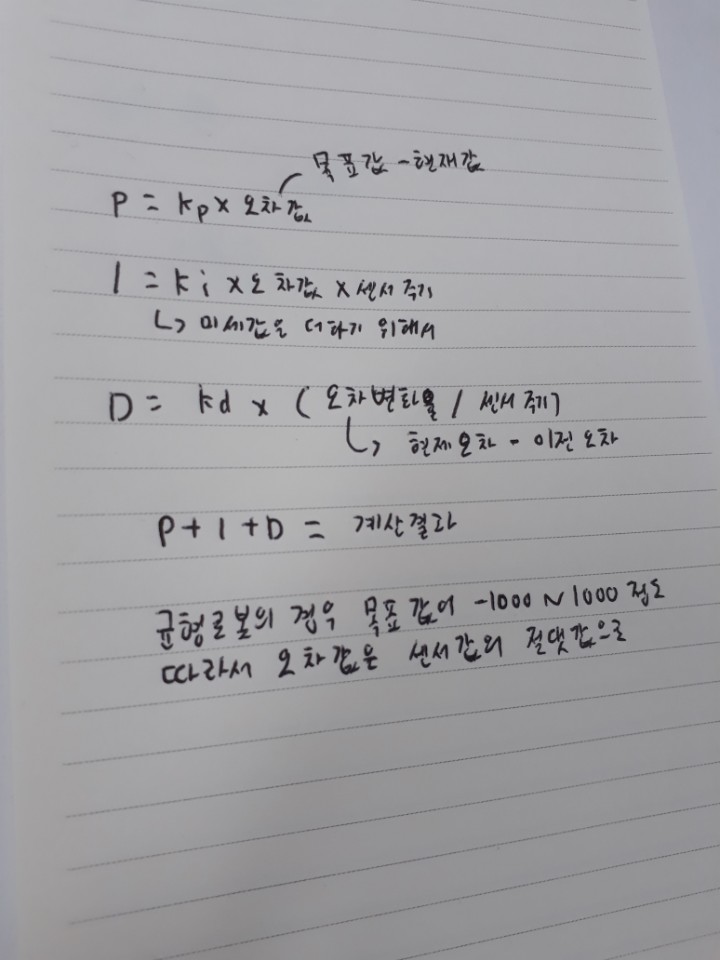 목표값 - 현재값
P = kp × 오차값
I = ki × 오차값 × 센서 주기
↳ 미세값을 더하기 위해서
D = kd × ( 오차변화율 / 센서 주기)
↳ 현제오차 - 이전오차
P + I + D = 계산결과
균형로봇의 경우 목표값이 -1000 ~ 1000 정도
따라서 오차값은 센서값의 절댓값으로